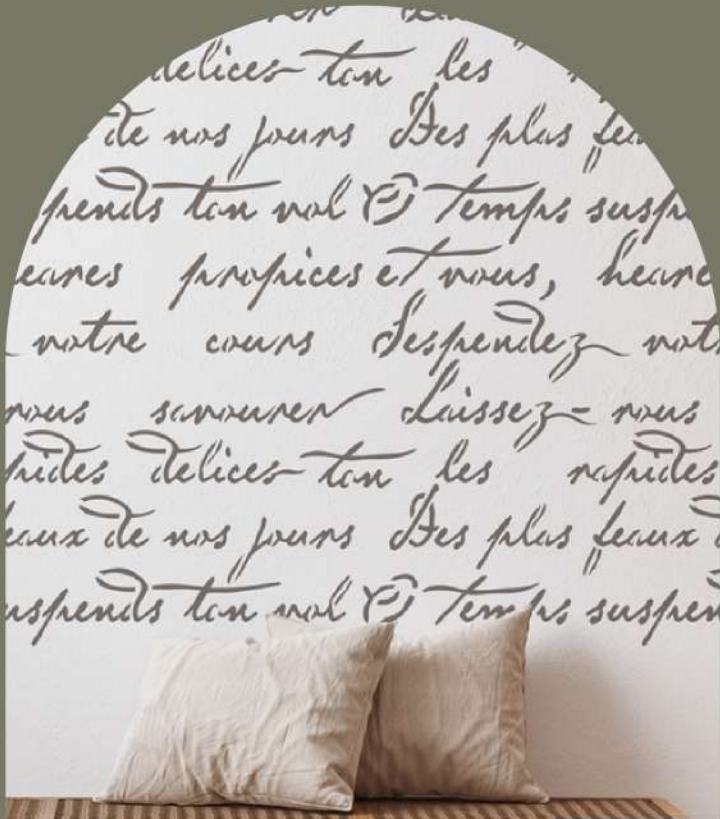 delices ton les
de nos jours Des plas
pends ton vol O Temps susp
eares propices et vous, heare
votre cours Sespendez vot
nous savourer Laissez- nous
pides delices ton les rapides
eaux de nos jours Des plas feaux
uspends ton vol O Temps suspen